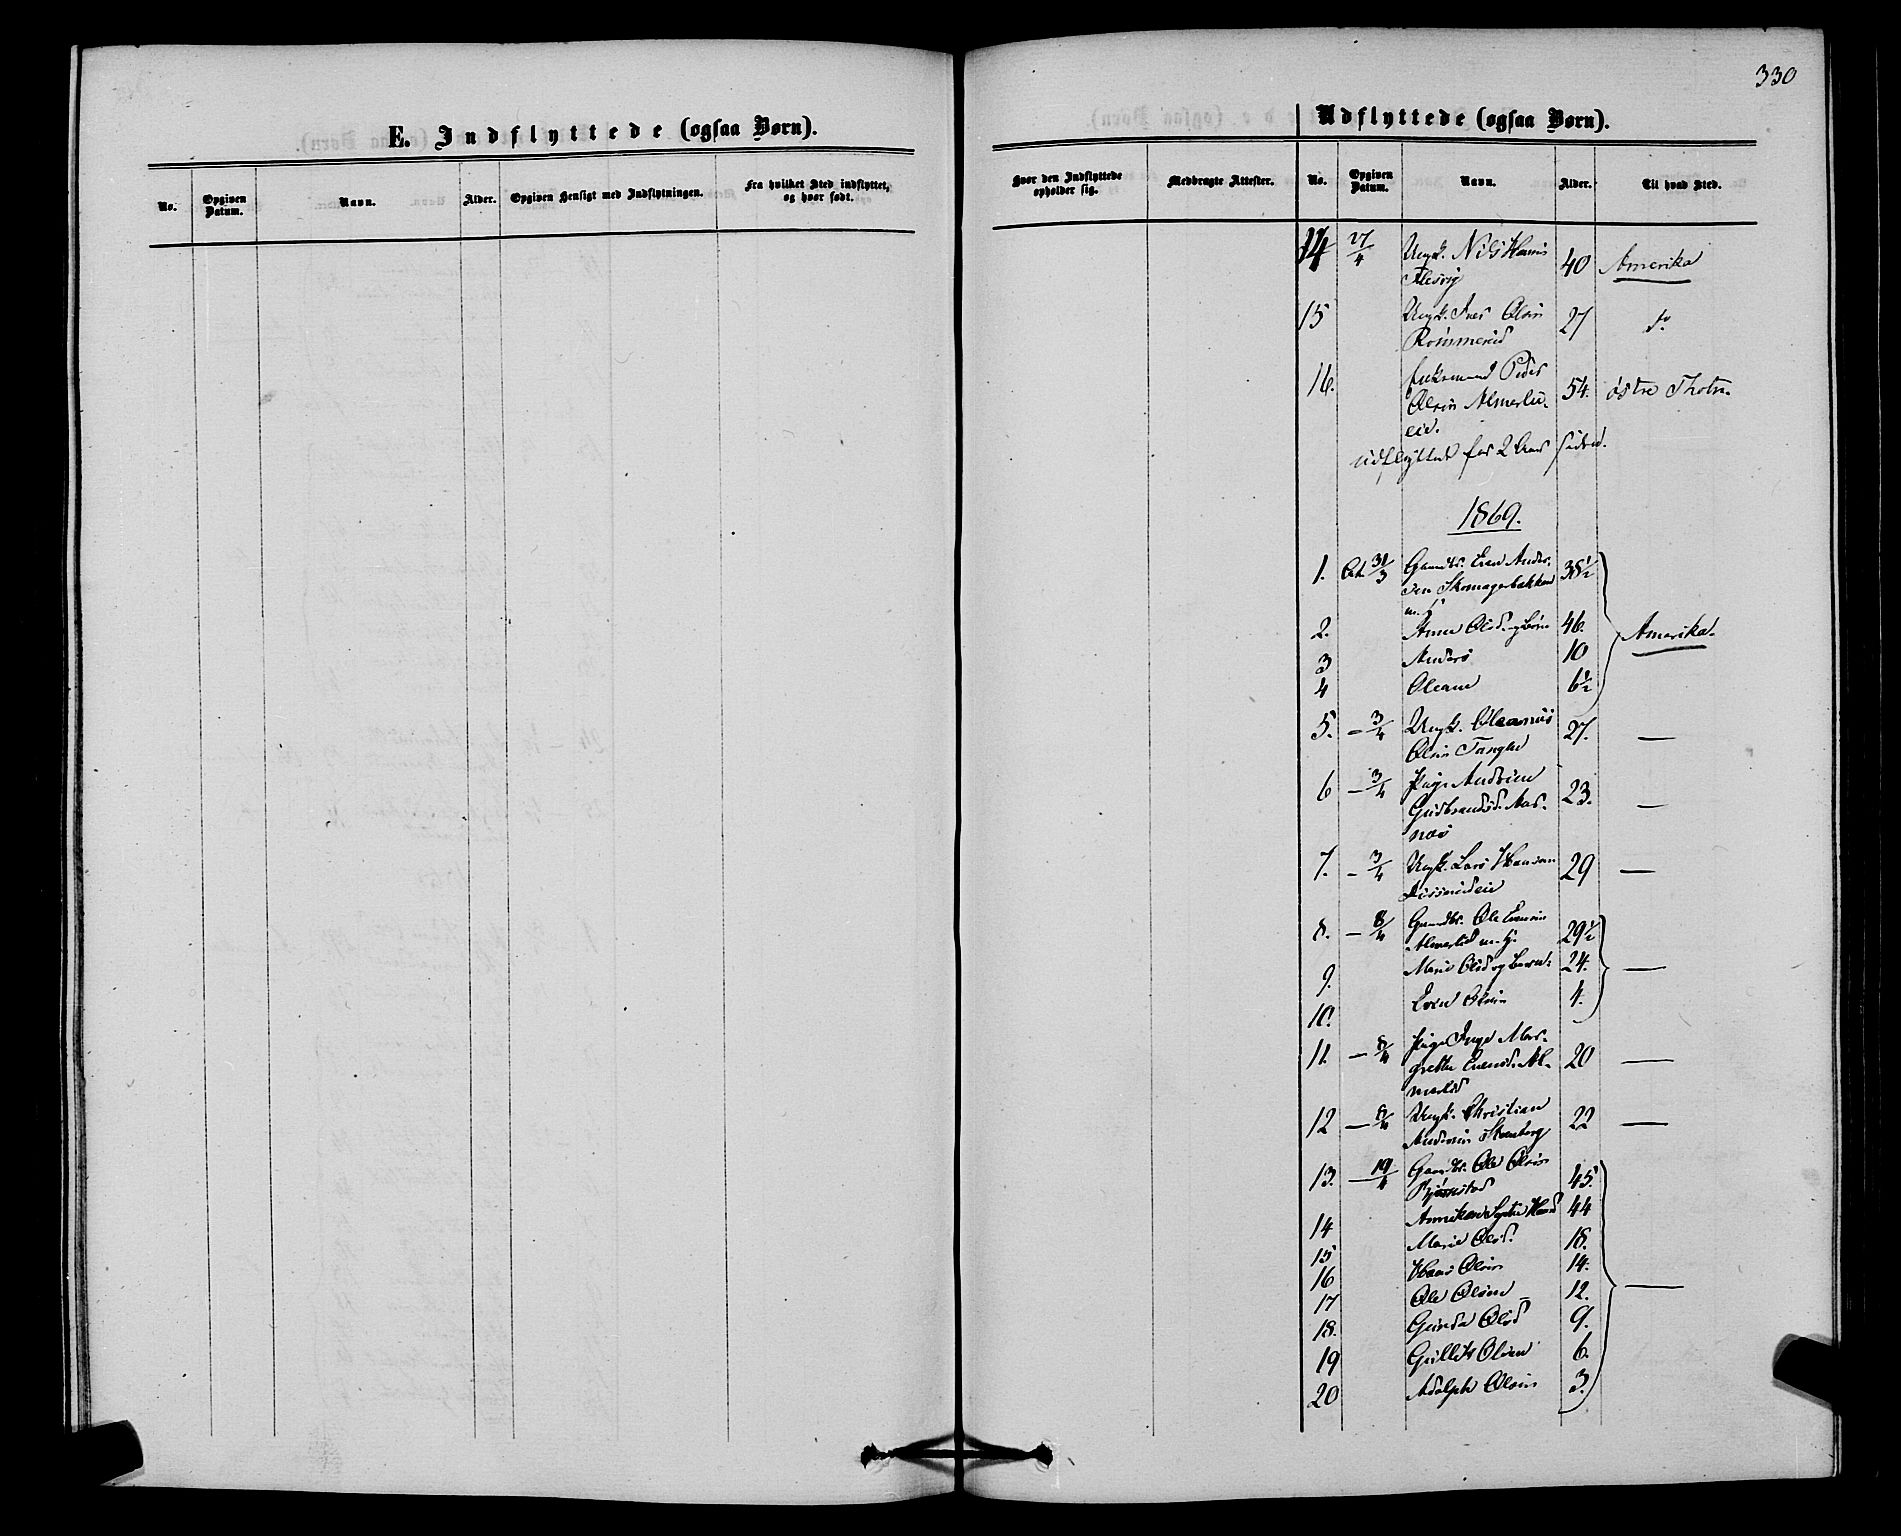 330
E. Indflyttede (ogsaa Børn).
No.
Opgiven Datum.
Navn.
Alder.
Opgiven Hensigt med Indflytningen.
Fra hvilket Sted indflyttet, og hvor født.
Udflyttede (ogsaa Børn).
Hvor den Indflyttede opholder sig.
Medbragte Attester.
No.
Opgiven Datum.
Navn.
Alder.
Til hvad Sted.
14 27/4 Ungk. Nils Hansen 40 Amerika
15 Ungk. Iver Olsen 27 do
16. Peder 54. østre Thoten
Olsen Almerli-
eie.
udflyttede for 2 Aar siden.
1869.
1. 31/3 Gaardbr. Even Ander- 38½
sen Skomagerbakken
m. H.
2. Anne Olsd. og Børn 46. Amerika.
3 Anders 10
4 Oleane 6½
5. - 3/4 Ungk. Oleanus 27. —
Olsen
6 - 3/4 Pige Andrine 23. —
Gudbrandsd. Aas-
næs
7. - 3/4 Ungk. Lars Hansen 29 —
8. - 8/4 Gaardbr. Ole Evensen 29½
Almerlid m. H.
9. Marie Olsd og Barn: 24. —
10. Even Olsen 4.
11. - 8/4 Pige Inge Mar- 20 —
grethe Evensd. Al-
merlid
12 - 8/4 Ungk. Christian 22 —
Andersen
13. - 19/4 Gaardbr. Ole Olsen 45.
14 Sophie Hansd 44
15 Marie Olsd. 18.
16 Hans Olsen 14.
17 Ole Olsen 12. —
18. Gunda Olsd 9.
19 Gullik Olsen 6.
20 Adolph Olsen 3.